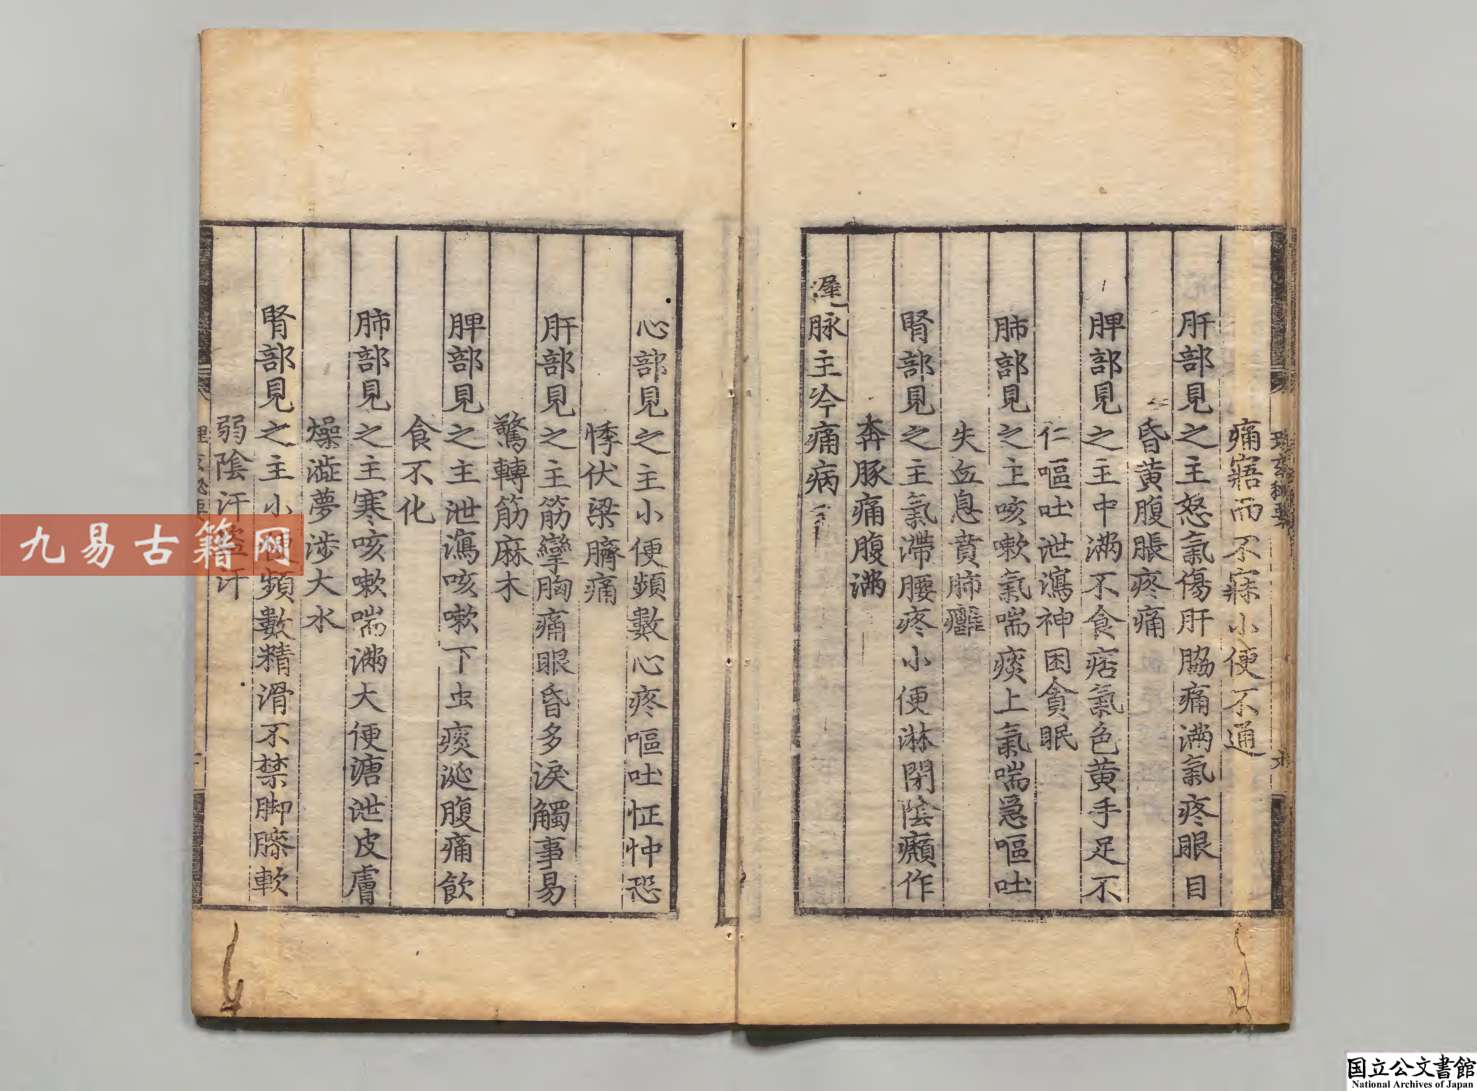 痛寤而不寐小便不通
肝部見之主怒氣傷肝脇痛滿氣疼眼目
昏黃腹脹疼痛
脾部見之主中滿不食痞氣色黃手足不
仁嘔吐泄瀉神困貪眠
肺部見之主咳嗽氣喘痰上氣喘急嘔吐
失血息賁肺癰
腎部見之主氣滯腰疼小便淋閉陰癩作
奔豚痛腹滿
遲脉主冷痛病
心部見之主小便頻數心疼嘔吐怔忡恐
悸伏梁臍痛
肝部見之主筋攣胸痛眼昏多淚觸事易
驚轉筋麻木
脾部見之主泄瀉咳嗽下虫痰涎腹痛飲
食不化
肺部見之主寒咳嗽喘滿大便溏泄皮膚
燥澁夢涉大水
腎部見之主小便頻數精滑不禁脚膝軟
弱陰汗盜汗
九易古籍网
国立公文書館
National Archives of Japan